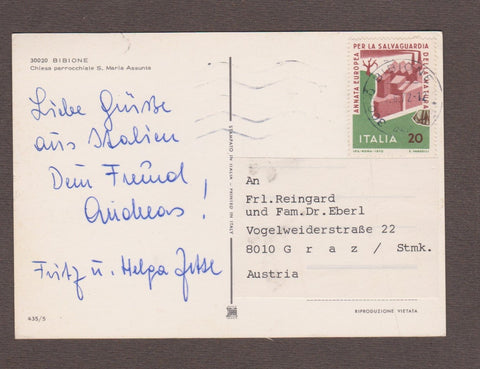 30020 BIBIONE
Chiesa parrocchiale S. Maria Assunta
Liebe Grüße
aus Italien
Dein Freund
Andreas!
Fritz u. Helga
435/5
STAMPATO IN ITALIA - PRINTED IN ITALY
ANNATA EUROPEA PER LA SALVAGUARDIA DELLA NATURA
ITALIA 20
An
Frl.Reingard
und Fam.Dr.Eberl
Vogelweiderstraße 22
8010 G r a z / Stmk.
Austria
RIPRODUZIONE VIETATA